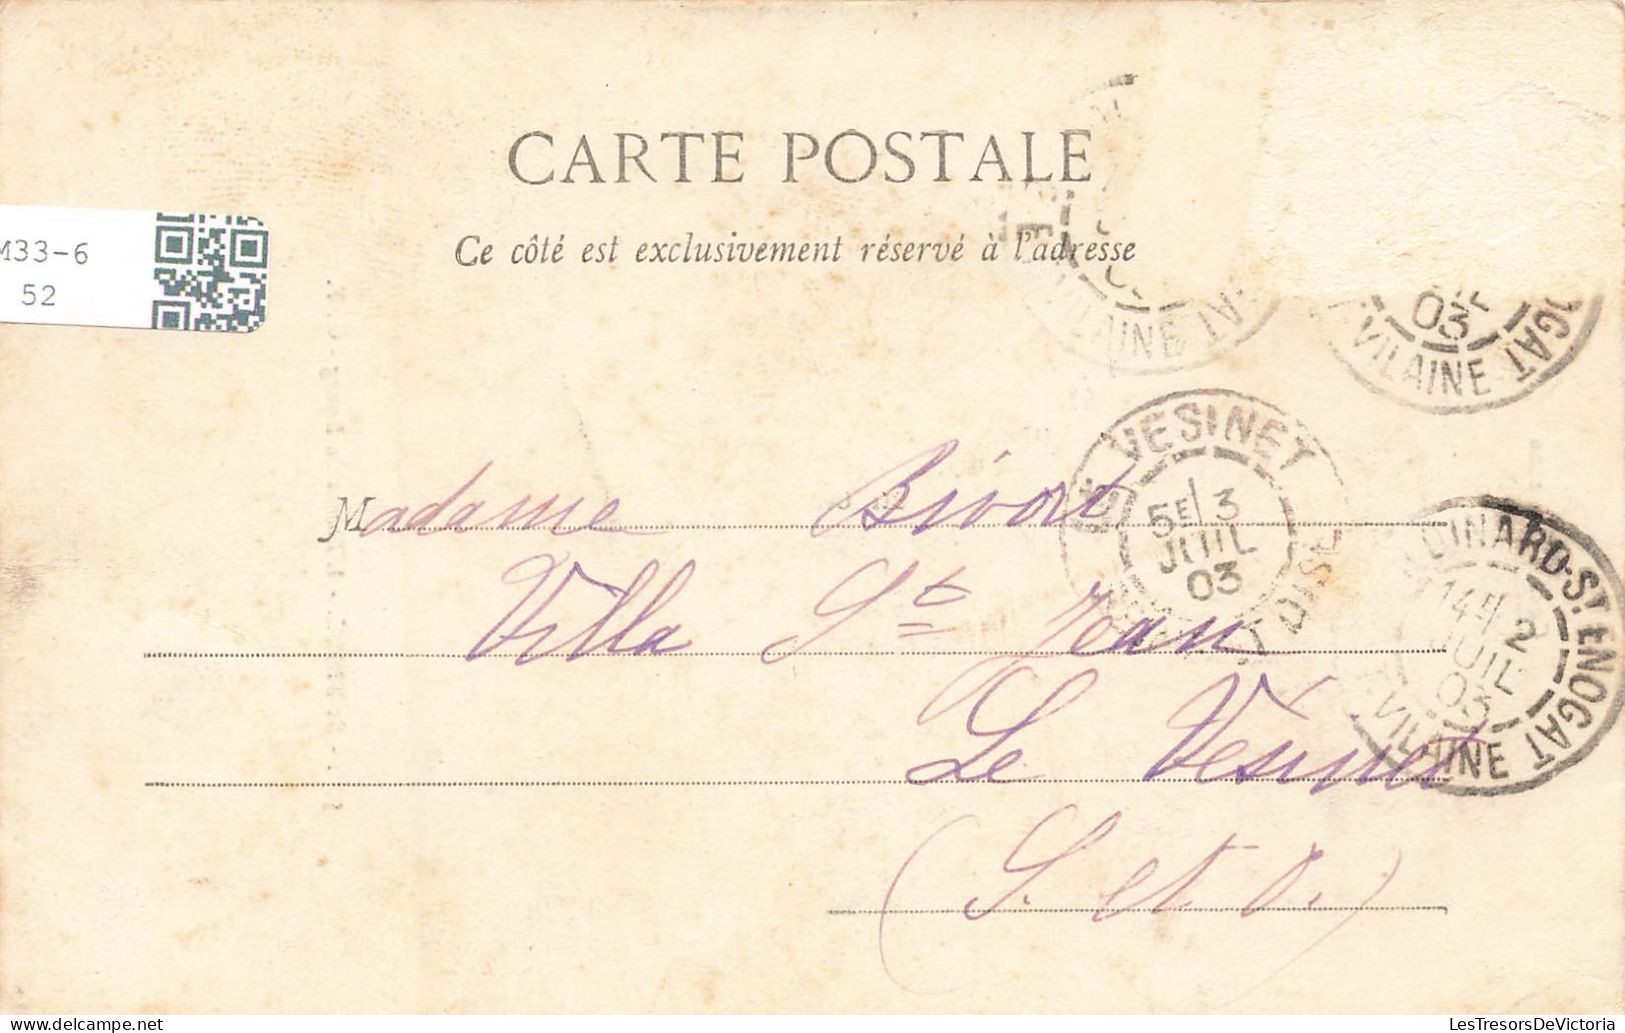 CARTE POSTALE
Ce côté est exclusivement réservé à l'adresse
M33-6
52
E VILAINE GAT
03
VILAINE OGAT
LE VESINET
5E 3
JUIL
03
S.-ET-OISE
Madame Bivort
Villa St Jean
Le Vésinet
(S. et O.)
DINARD-ST ENOGAT
14E 2
JUIL
03
VILAINE
LesTresorsDeVictoria